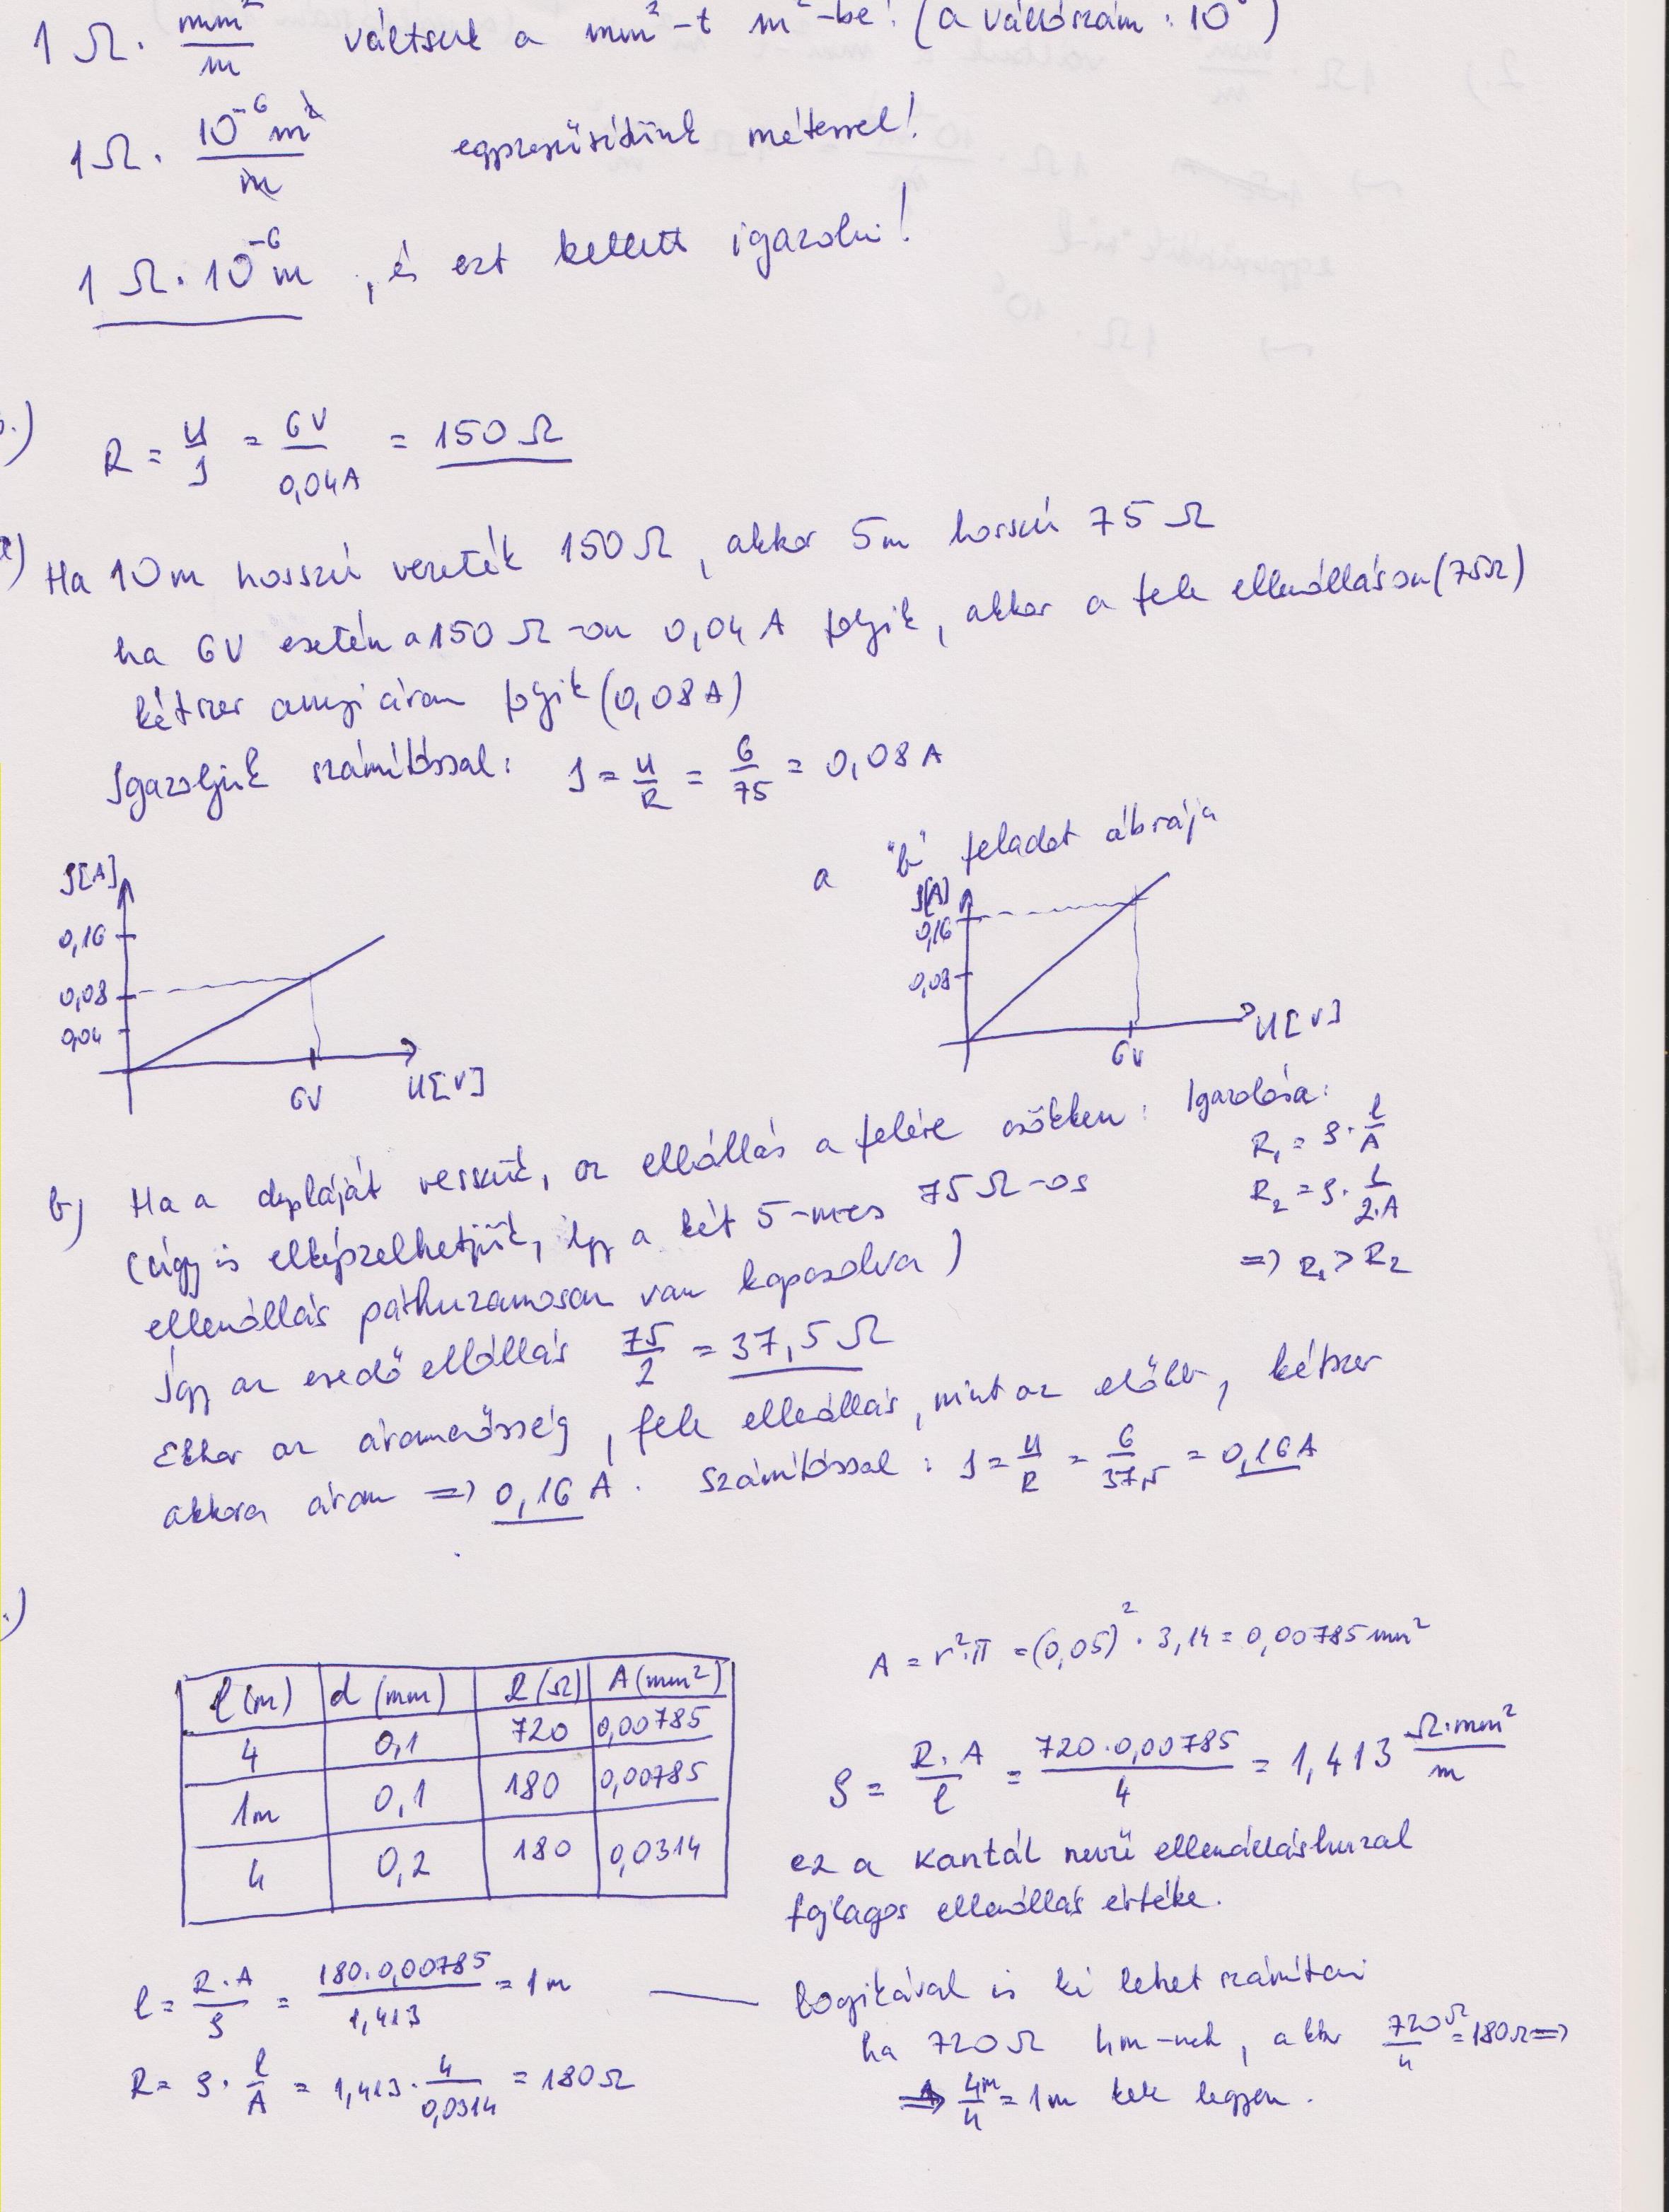 1 Ω · mm²/m váltsuk a mm²-t m²-be! (a váltószám: 10⁶)
1 Ω · 10⁻⁶m²/m egyszerűsítünk méterrel!
1 Ω · 10⁻⁶m, és ezt kellett igazolni!
.) R = U/I = 6V/0,04A = 150 Ω
a) Ha 10m hosszú vezeték 150 Ω, akkor 5m hosszú 75 Ω
ha 6V esetén a 150 Ω-on 0,04 A folyik, akkor a fele ellenálláson (75Ω)
kétszer annyi áram folyik (0,08 A)
Igazoljuk számítással: I = U/R = 6/75 = 0,08 A
a "b" feladat ábrája
I[A]
0,16
0,08
0,04
6V
U[V]
I[A]
0,16
0,08
6V
U[V]
b) Ha a dupláját vesszük, az ellállás a felére csökken: Igazolása:
R₁ = ρ · l/A
(úgy is elképzelhetjük, így a két 5-m-es 75 Ω-os
R₂ = ρ · l/2·A
ellenállás párhuzamosan van kapcsolva)
=> R₁ > R₂
Így az eredő ellállás 75/2 = 37,5 Ω
Ekkor az áramerősség, fele ellenállás, mint az előbb, kétszer
akkora áram => 0,16 A. Számítással: I = U/R = 6/37,5 = 0,16 A
.)
A = r²·π = (0,05)² · 3,14 = 0,00785 mm²
l (m) d (mm) R (Ω) A (mm²)
4 0,1 720 0,00785
1m 0,1 180 0,00785
4 0,2 180 0,0314
ρ = R·A/l = 720·0,00785/4 = 1,413 Ω·mm²/m
ez a Kantál nevű ellenálláshuzal
fajlagos ellenállás értéke.
l = R·A/ρ = 180·0,00785/1,413 = 1m — logikával is ki lehet számítani
ha 720 Ω 4m-nek, akkor 720Ω/4 = 180Ω =>
R = ρ · l/A = 1,413 · 4/0,0314 = 180Ω
=> 4m/4 = 1m kell legyen.